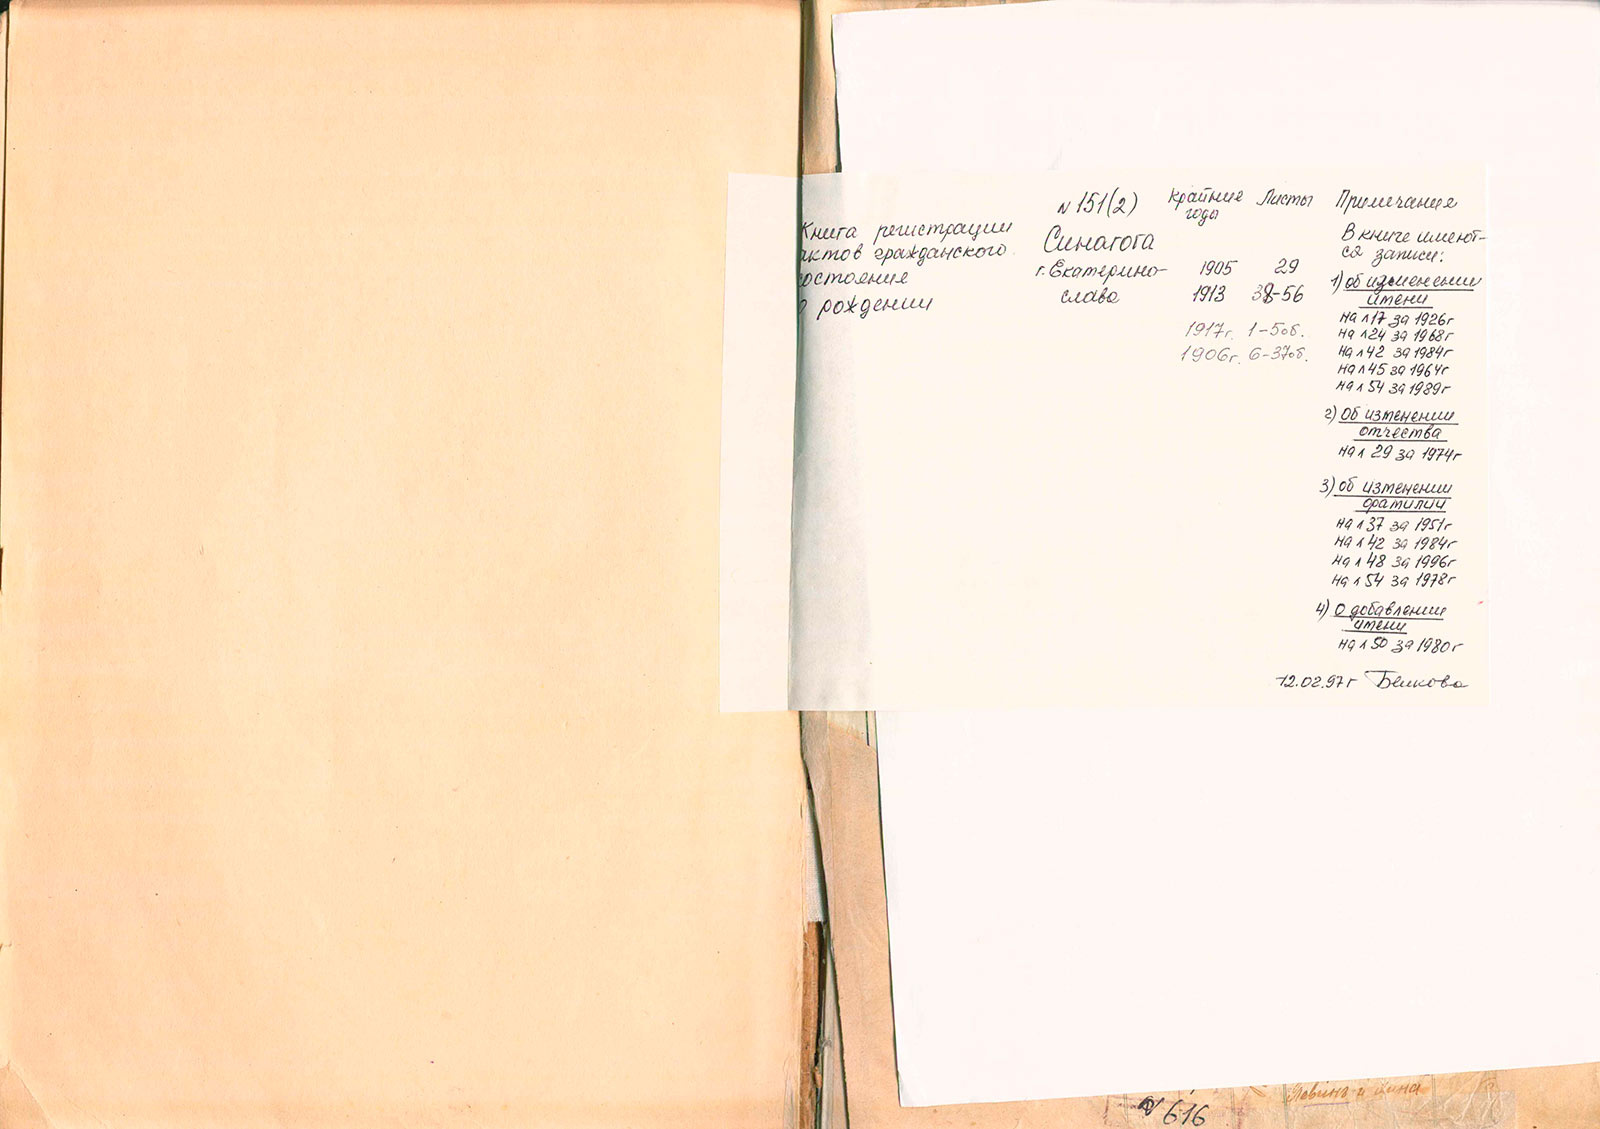 N 151(2)
Крайние
годы
Листы
Примечания
Книга регистрации
актов гражданского
состояния
о рождении
Синагога
г. Екатерино-
слава
1905 29
1913 38-56
1917г. 1-5об.
1906г. 6-37об.
В книге имеют-
ся записи:
1) об изменении
имени
на л 17 за 1926г
на л 24 за 1968г
на л 42 за 1984г
на л 45 за 1964г
на л 54 за 1989г
2) Об изменении
отчества
на л 29 за 1974г
3) об изменении
фамилии
на л 37 за 1951г
на л 42 за 1984г
на л 48 за 1996г
на л 54 за 1978г
4) О добавлении
имени
на л 50 за 1980г
12.02.97г
N 616